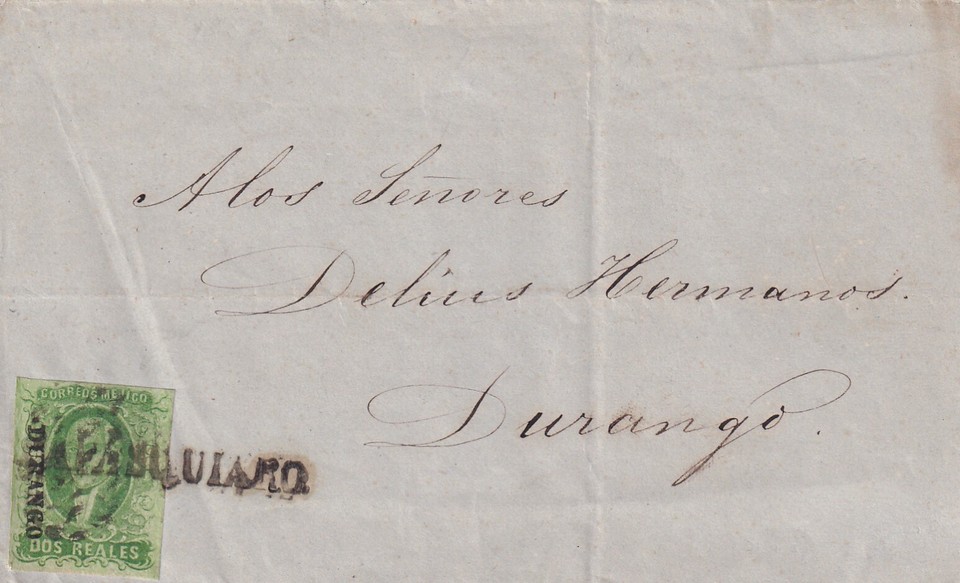 A los Señores
Delius Hermanos.
Durango.
CORREOS MEXICO
DURANGO
DOS REALES